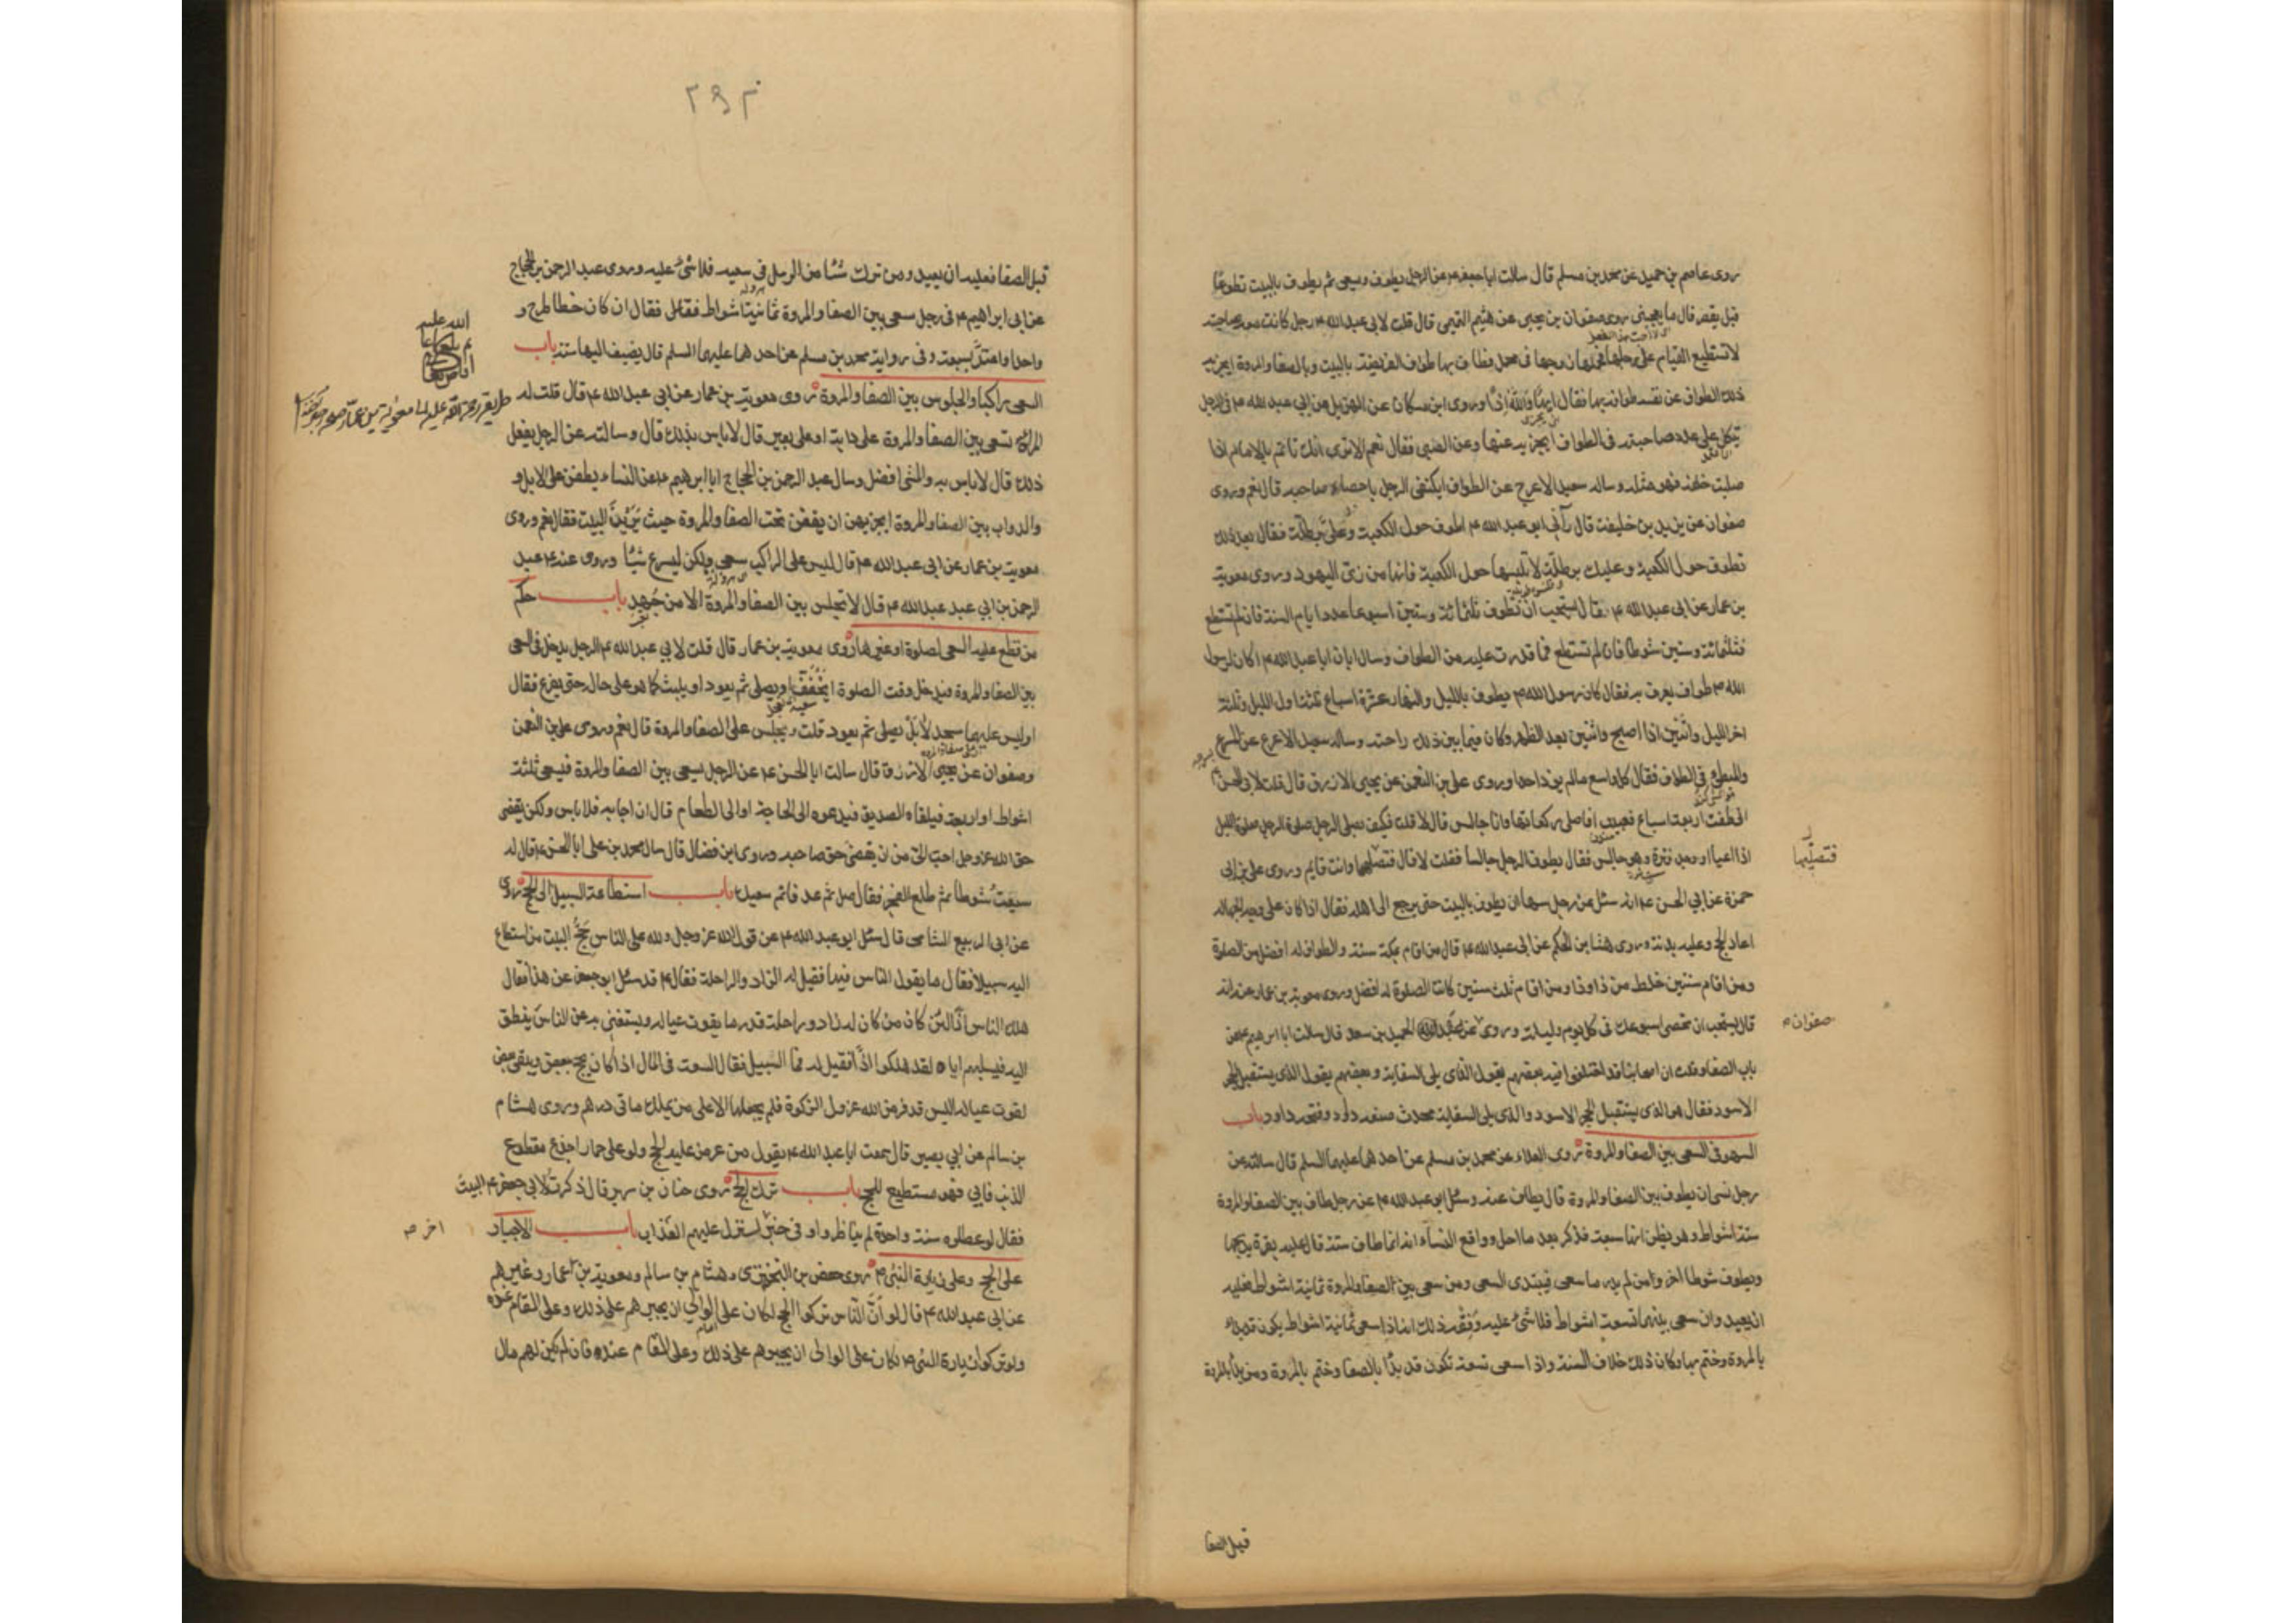 روى عاصم بن حميد عن محمد بن مسلم قال سالت ابا جعفر ع عن الرجل يطوف ويسعى ثم يطوف بالبيت تطوعا
قبل يقصر قال ما يعجبنى روى صفوان بن يحيى عن هيثم التميمى قال قلت لابى عبد الله ع رجل كانت معه صاحبته
لا تستطيع القيام على رجلها فحملها زوجها فى محمل فطاف بها طواف الفريضة بالبيت وبالصفا والمروة ايجزيه
ذلك الطواف عن نفسه طوافه بها فقال ايها والله اذا وروى ابن مسكان عن الهذيل عن ابى عبد الله ع فى الرجل
يتكل على عدد صاحبته فى الطواف ايجزيه عنها وعن الصبى فقال نعم الا ترى انك تاتم بالامام اذا
صليت خلفه فهو مثله وساله سعيد الاعرج عن الطواف ايكتفى الرجل باحصاء صاحبه قال نعم وروى
صفوان عن يزيد بن خليفة قال رآنى ابو عبد الله ع اطوف حول الكعبة وعلى برطلة فقال بعد ذلك
تطوف حول الكعبة وعليك برطلة لا تلبسها حول الكعبة فانها من زى اليهود وروى معوية
بن عمار عن ابى عبد الله ع قال يستحب ان تطوف ثلثمائة وستين اسبوعا عدد ايام السنة فان لم تستطع
فثلثمائة وستين شوطا فان لم تستطع فما قدرت عليه من الطواف وسال ابان ابا عبد الله ع اكان لرسول
الله ص طواف يعرف به فقال كان رسول الله ص يطوف بالليل والنهار عشرة اسباع ثلثة اول الليل وثلثة
اخر الليل واثنين اذا اصبح واثنين بعد الظهر وكان فيما بين ذلك راحته وساله سعيد الاعرج عن المسرع
والمبطئ فى الطواف فقال كل واسع مالم يوذ احدا وروى على بن النعمن عن يحيى الازرق قال قلت لابى الحسن ع
انى طفت اربعة اسباع فعييت افاصلى ركعاتها وانا جالس قال لا قلت فكيف يصلى الرجل صلوة الليل
اذا اعيا او وجد فترة وهو جالس فقال يطوف الرجل جالسا فقلت لا قال فتصليها وانت قايم وروى على بن ابى
فتصليها
حمزة عن ابى الحسن ع انه سئل عن رجل سها ان يطوف بالبيت حتى يرجع الى اهله فقال اذا كان على وجه الجهالة
اعاد الحج وعليه بدنة وروى هشام بن الحكم عن ابى عبد الله ع قال من اقام بمكة سنة والطواف له افضل من الصلوة
ومن اقام سنتين خلط من ذا وذا ومن اقام ثلث سنين كانت الصلوة له افضل وروى معوية بن عمار عنه انه
قال يستحب ان تحصى اسبوعك فى كل يوم وليلة وروى عن عبد الحميد بن سعد قال سالت ابا ابرهيم ع عن
صفوان
باب الصفا وقلت ان اصحابنا قد اختلفوا فيه بعضهم يقول الذى يلى السقاية وبعضهم يقول الذى يستقبل الحجر
الاسود فقال هو الذى يستقبل الحجر الاسود والذى يلى السقاية محدث صنعه داود وفتحه داود باب
السهو فى السعى بين الصفا والمروة روى العلاء عن محمد بن مسلم عن احدهما عليهما السلم قال سالته عن
رجل نسى ان يطوف بين الصفا والمروة قال يطاف عنه وسئل ابو عبد الله ع عن رجل طاف بين الصفا والمروة
ستة اشواط وهو يظن انها سبعة فذكر بعد ما احل وواقع النساء انه انما طاف ستة قال عليه بقرة يذبحها
ويطوف شوطا اخر وامن لم يدر ما سعى فيبتدى السعى ومن سعى بين الصفا والمروة ثمانية اشواط فعليه
ان يعيد وان سعى بينهما تسعة اشواط فلا شئ عليه وفقه ذلك انه اذا سعى ثمانية اشواط يكون قد بدا
بالمروة وختم بها وكان ذلك خلاف السنة واذا سعى تسعة تكون قد بدا بالصفا وختم بالمروة ومن بدا بالمروة
قبل الصفا
قبل الصفا فعليه ان يعيد ومن ترك شيئا من الرمل فى سعيه فلا شئ عليه وروى عبد الرحمن بن الحجاج
عن ابى ابراهيم ع فى رجل سعى بين الصفا والمروة ثمانية اشواط فقال ان كان خطا طرح و
واحدا واعتد بسبعة وفى رواية محمد بن مسلم عن احدهما عليهما السلم قال يضيف اليها ستة باب
السعى راكبا والجلوس بين الصفا والمروة روى معوية بن عمار عن ابى عبد الله ع قال قلت له
المراة تسعى بين الصفا والمروة على دابة او على بعير قال لا باس بذلك قال وسالته عن الرجل يفعل
ذلك قال لا باس به والمشى افضل وسال عبد الرحمن بن الحجاج ابا ابرهيم ع عن النساء يطفن على الابل و
والدواب بين الصفا والمروة ايجزيهن ان يقفن تحت الصفا والمروة حيث يرين البيت فقال نعم وروى
معوية بن عمار عن ابى عبد الله ع قال ليس على الراكب سعى ولكن ليسرع شيئا وروى عنه ع عبد
الرحمن بن ابى عبد عبد الله ع قال لا تجلس بين الصفا والمروة الا من جهد باب حكم
من قطع عليه السعى لصلوة او غيرها روى معوية بن عمار قال قلت لابى عبد الله ع الرجل يدخل فى السعى
بين الصفا والمروة فيدخل وقت الصلوة ايخفف او يصلى ثم يعود او يلبث كما هو على حال حتى يفرغ فقال
اوليس عليهما مسجد لا بل يصلى ثم يعود قلت ويجلس على الصفا والمروة قال نعم وروى على بن النعمن
وصفوان عن يحيى الازرق قال سالت ابا الحسن ع عن الرجل يسعى بين الصفا والمروة فيسعى ثلثة
اشواط او اربعة فيلقاه الصديق فيدعوه الى الحاجة او الى الطعام قال ان اجابه فلا باس ولكن يقضى
حق الله عز وجل احب الى من ان يقضى حق صاحبه وروى ابن فضال قال سال محمد بن على ابا الحسن ع قال له
سعيت شوطا ثم طلع الفجر فقال صل ثم عد فاتم سعيك باب استطاعة السبيل الى الحج روى
عن ابى الربيع الشامى قال سئل ابو عبد الله ع عن قول الله عز وجل ولله على الناس حج البيت من استطاع
اليه سبيلا فقال ما يقول الناس فيها فقيل له الزاد والراحلة فقال ع قد سئل ابو جعفر عن هذا فقال
هلك الناس اذا لئن كان من كان له زاد وراحلة قدر ما يقوت عياله ويستغنى به عن الناس ينطلق
اليه فيسلبهم اياه لقد هلكوا اذا فقيل له فما السبيل فقال السعة فى المال اذا كان يحج ببعض ويبقى بعض
لقوت عياله اليس قد فرض الله عز وجل الزكوة فلم يجعلها الا على من يملك ماتى درهم وروى هشام
بن سالم عن ابى بصير قال سمعت ابا عبد الله ع يقول من عرض عليه الحج ولو على حمار اجدع مقطوع
الذنب فابى فهو مستطيع للحج باب ترك الحج روى حنان بن سدير قال ذكرت لابى جعفر ع البيت
فقال لو عطلوه سنة واحدة لم يناظروا وفى خبر لنزل عليهم العذاب باب الاجبار
اخر
على الحج وعلى زيارة النبى ص روى حفص بن البخترى وهشام بن سالم ومعوية بن عمار وغيرهم
عن ابى عبد الله ع قال لو ان الناس تركوا الحج لكان على الوالى ان يجبرهم على ذلك وعلى المقام عنده
ولو تركوا زيارة النبى ص لكان على الوالى ان يجبرهم على ذلك وعلى المقام عنده فان لم يكن لهم مال